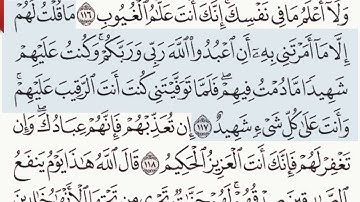 وَلَآ أَعْلَمُ مَا فِى نَفْسِكَ ۚ إِنَّكَ أَنتَ عَلَّٰمُ ٱلْغُيُوبِ ١١٦ مَا قُلْتُ لَهُمْ
إِلَّا مَآ أَمَرْتَنِى بِهِۦٓ أَنِ ٱعْبُدُوا۟ ٱللَّهَ رَبِّى وَرَبَّكُمْ ۚ وَكُنتُ عَلَيْهِمْ
شَهِيدًا مَّا دُمْتُ فِيهِمْ ۖ فَلَمَّا تَوَفَّيْتَنِى كُنتَ أَنتَ ٱلرَّقِيبَ عَلَيْهِمْ ۚ
وَأَنتَ عَلَىٰ كُلِّ شَىْءٍ شَهِيدٌ ١١٧ إِن تُعَذِّبْهُمْ فَإِنَّهُمْ عِبَادُكَ ۖ وَإِن
تَغْفِرْ لَهُمْ فَإِنَّكَ أَنتَ ٱلْعَزِيزُ ٱلْحَكِيمُ ١١٨ قَالَ ٱللَّهُ هَٰذَا يَوْمُ يَنفَعُ